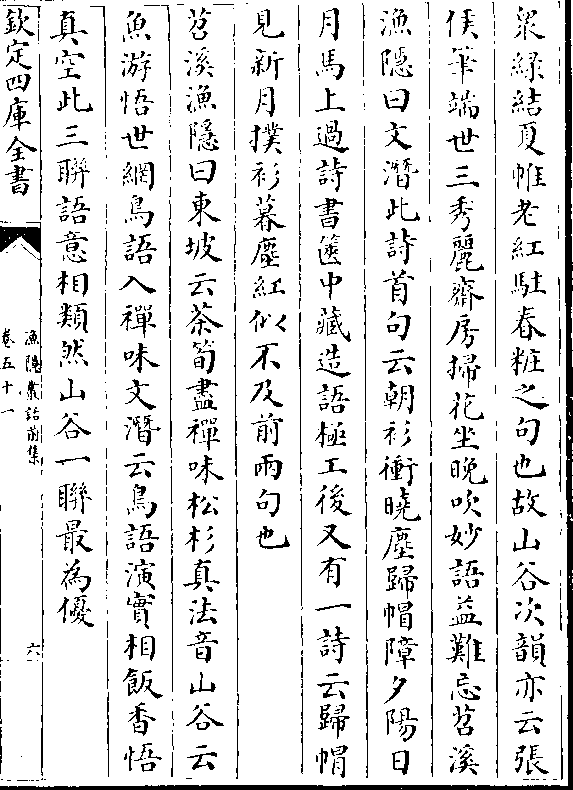 衆綠結夏帷老紅駐春粧之句也故山谷次韻亦云張
侯筆端世三秀麗齋房掃花坐晚吹妙語益難忘苕溪
漁隱曰文潛此詩首句云朝衫衝曉塵歸帽障夕陽日
月馬上過詩書篋中藏造語極工後又有一詩云歸帽
見新月撲衫暮塵紅似不及前兩句也
苕溪漁隱曰東坡云茶筍盡禪味松杉真法音山谷云
魚游悟世網鳥語入禪味文潛云鳥語演實相飯香悟
真空此三聯語意相類然山谷一聯最為優
欽定四庫全書
漁隱叢話前集
卷五十一
六